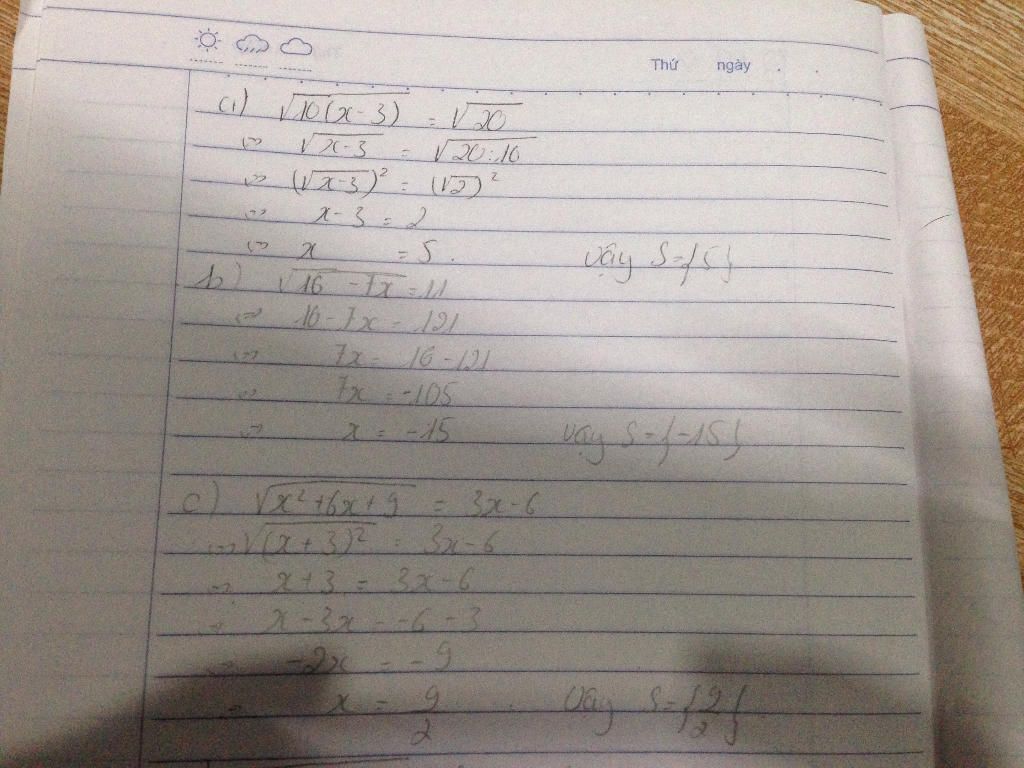 Thứ ngày
a) √10(x-3) = √20
⇔ √x-3 = √20:10
⇔ (√x-3)² = (√2)²
⇔ x-3 = 2
⇔ x = 5. vậy S={5}
b) √16-7x = 11
⇔ 16-7x = 121
⇔ 7x = 16-121
⇔ 7x = -105
⇔ x = -15 vậy S={-15}
c) √x²+6x+9 = 3x-6
⇔ √(x+3)² = 3x-6
⇔ x+3 = 3x-6
⇔ x-3x = -6-3
⇔ -2x = -9
⇔ x = 9/2. Vậy S={9/2}